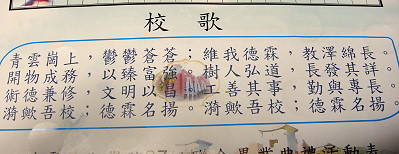 校歌
青雲崗上，鬱鬱蒼蒼；維我德霖，教澤綿長。
開物成務，以臻富強。樹人弘道，長發其詳。
術德兼修，文明以昌。工善其事，勤與專長。
漪歟吾校；德霖名揚。漪歟吾校；德霖名揚。